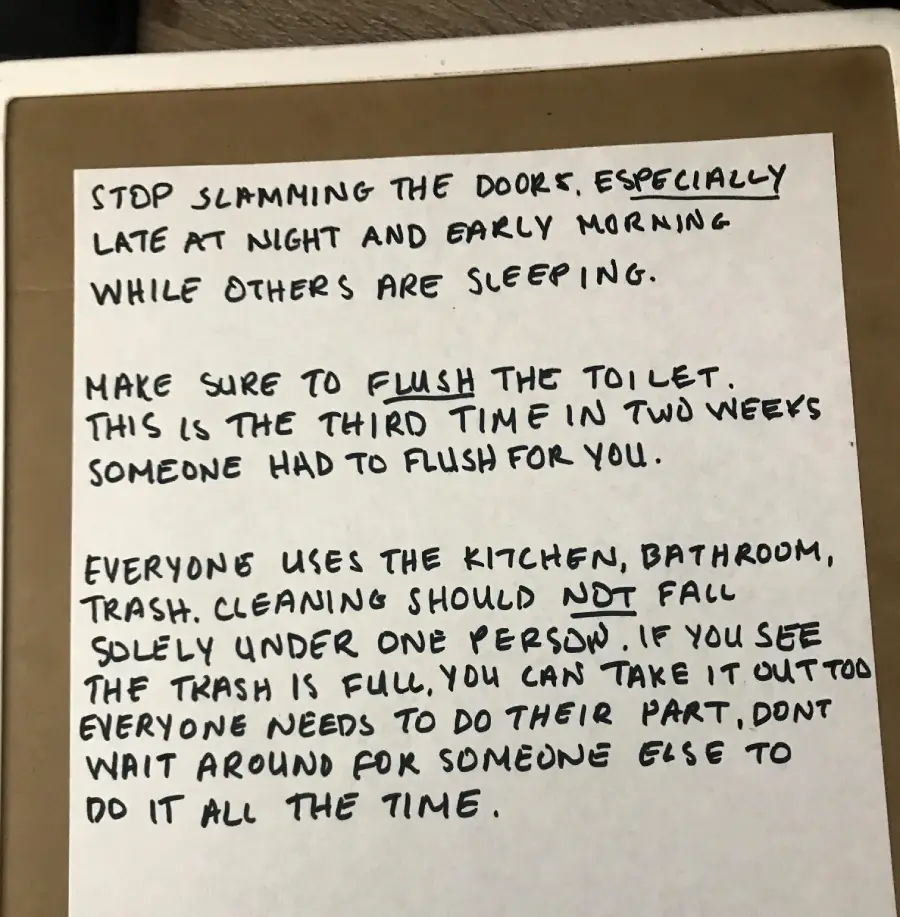 STOP SLAMMING THE DOORS, ESPECIALLY
LATE AT NIGHT AND EARLY MORNING
WHILE OTHERS ARE SLEEPING.
MAKE SURE TO FLUSH THE TOILET.
THIS IS THE THIRD TIME IN TWO WEEKS
SOMEONE HAD TO FLUSH FOR YOU.
EVERYONE USES THE KITCHEN, BATHROOM,
TRASH. CLEANING SHOULD NOT FALL
SOLELY UNDER ONE PERSON. IF YOU SEE
THE TRASH IS FULL, YOU CAN TAKE IT OUT TOO
EVERYONE NEEDS TO DO THEIR PART, DONT
WAIT AROUND FOR SOMEONE ELSE TO
DO IT ALL THE TIME.